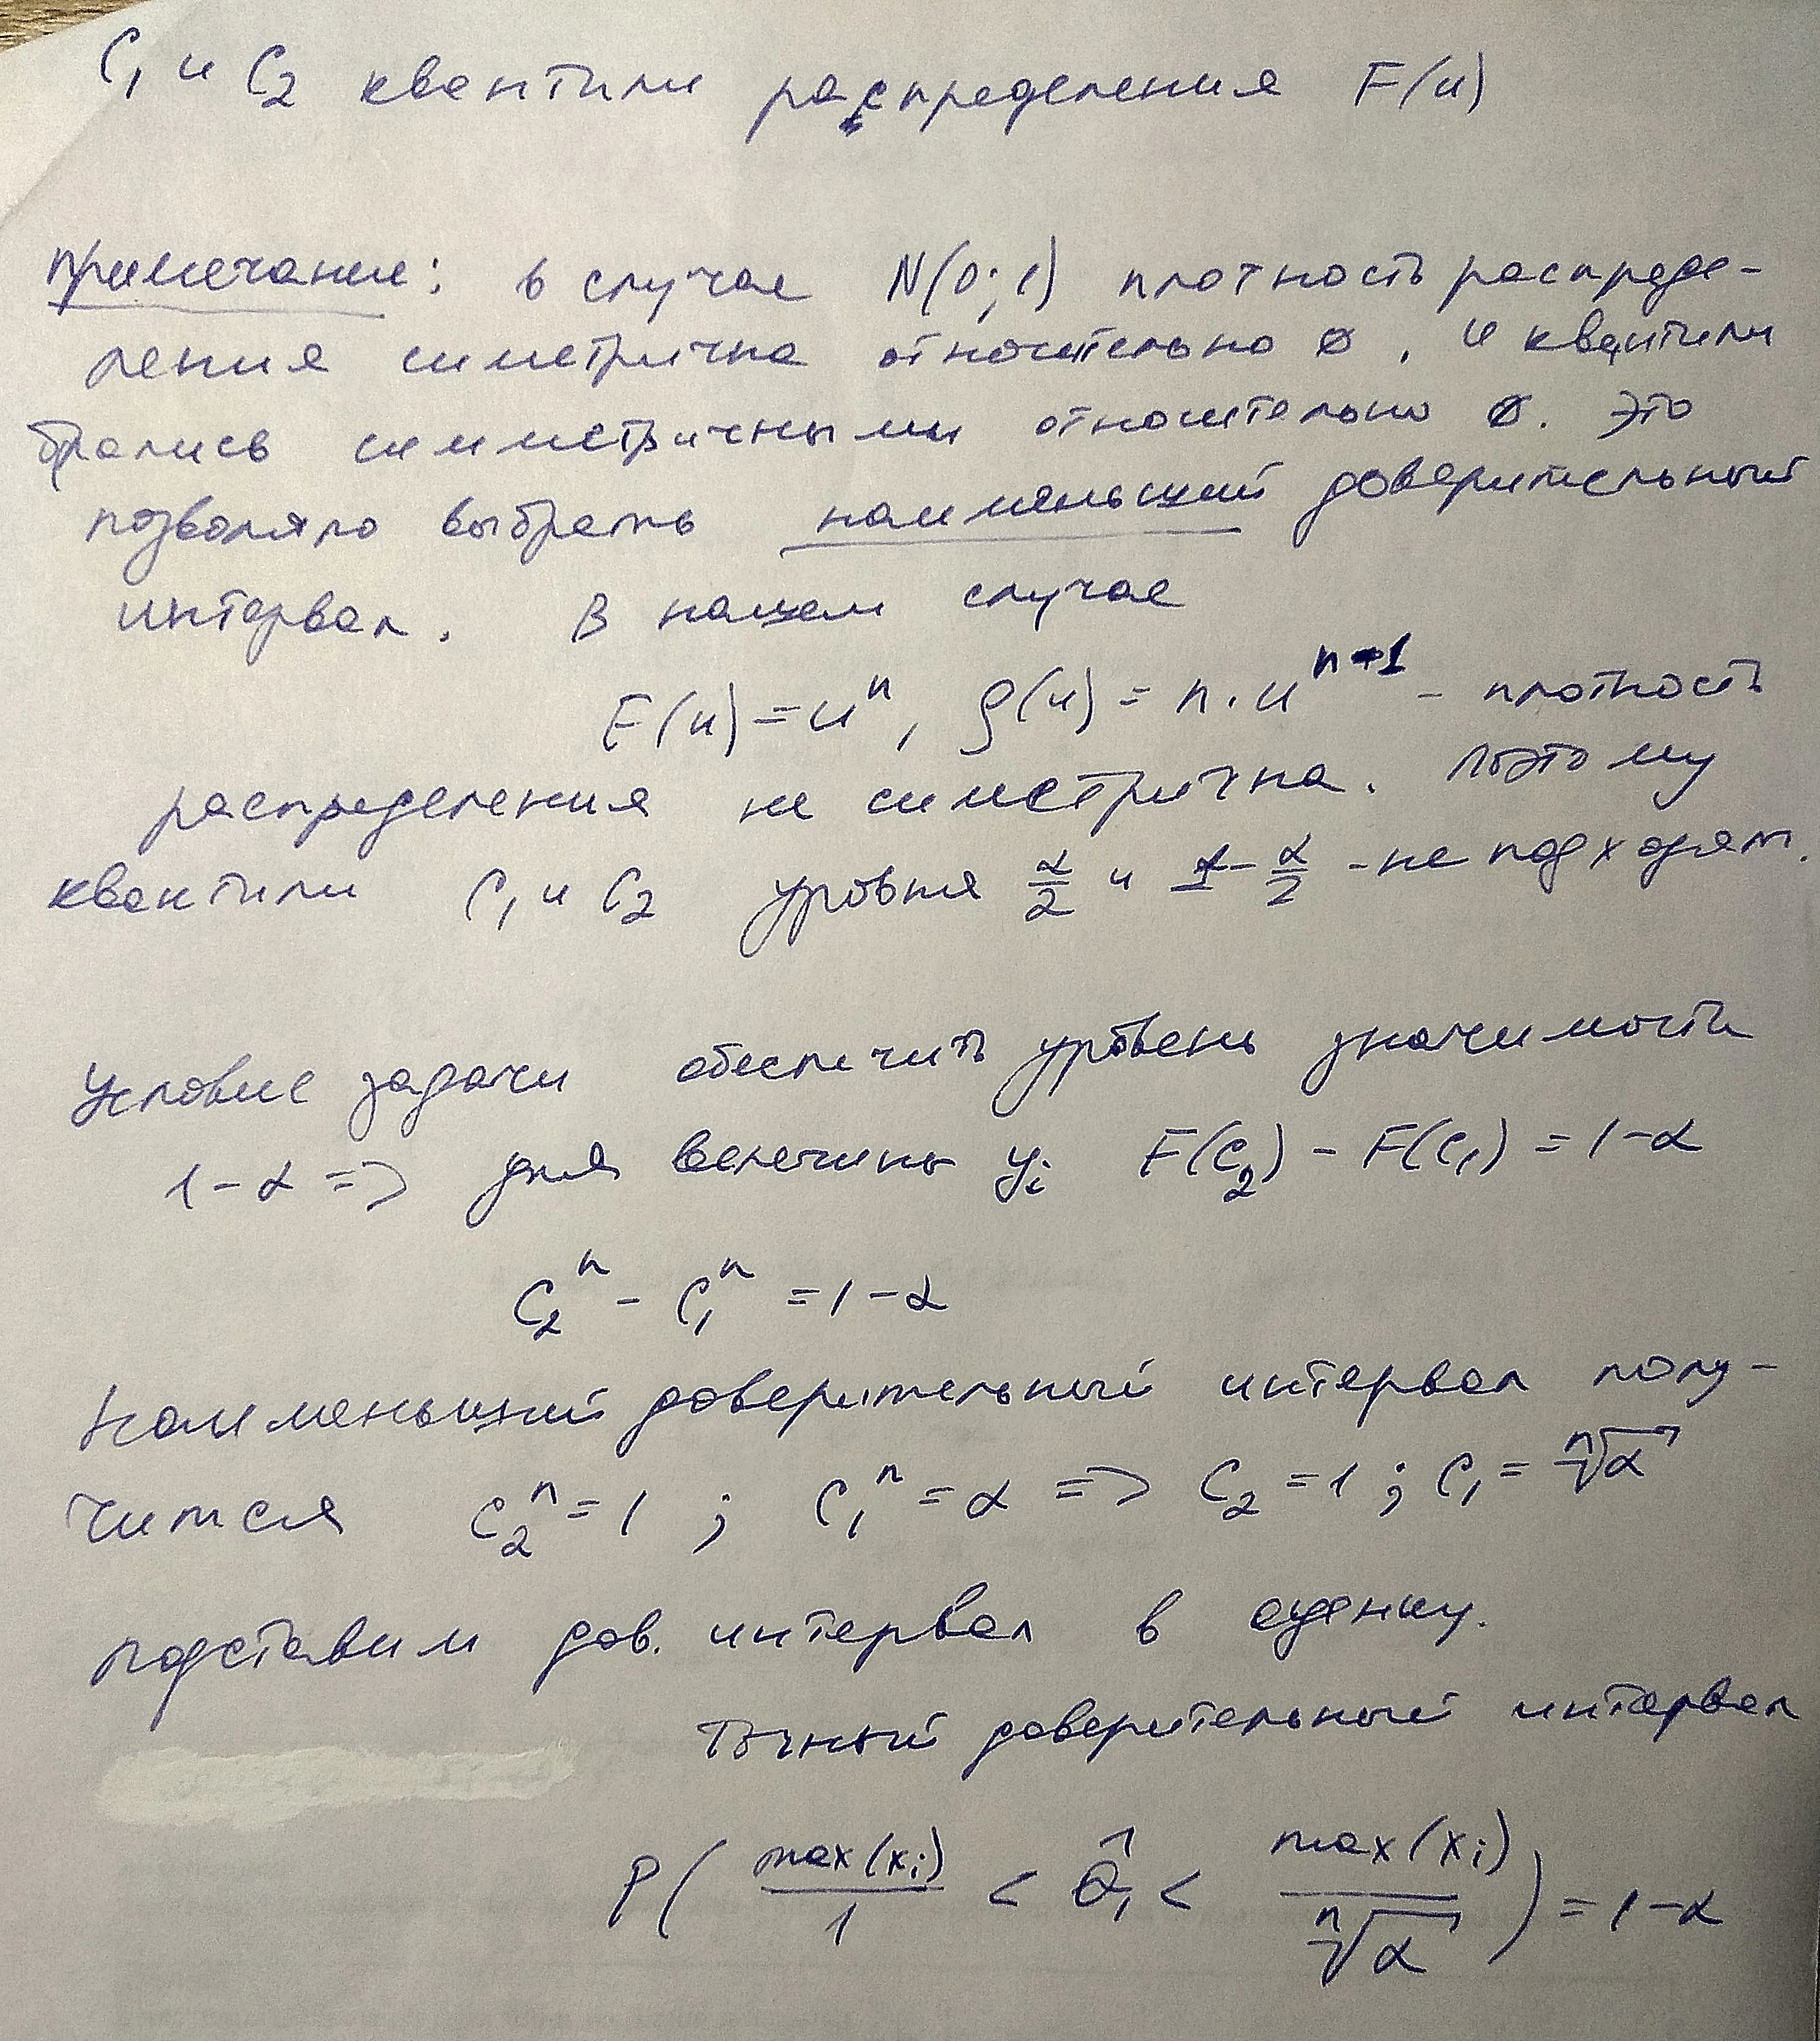 C₁ и C₂ квантили распределения F(u)
Примечание: в случае N(0;1) плотность распреде-
ления симетрична относительно 0, и квантили
брались симметричными относительно 0. Это
позволяло выбрать наименьший доверительный
интервал. В нашем случае
F(u) = uⁿ, ρ(u) = n·uⁿ⁻¹ – плотность
распределения не симетрична. Поэтому
квантили C₁ и C₂ уровня α/2 и 1-α/2 - не подходят.
Условие задачи обеспечить уровень значимости
1-α => для величины yᵢ F(C₂) - F(C₁) = 1-α
C₂ⁿ - C₁ⁿ = 1-α
Наименьший доверительный интервал полу-
чится C₂ⁿ = 1 ; C₁ⁿ = α => C₂ = 1 ; C₁ = ⁿ√α
подставим дов. интервал в оценку.
Точный доверительный интервал
P( max(xᵢ)/1 < θ̂₁ < max(xᵢ)/ⁿ√α ) = 1-α